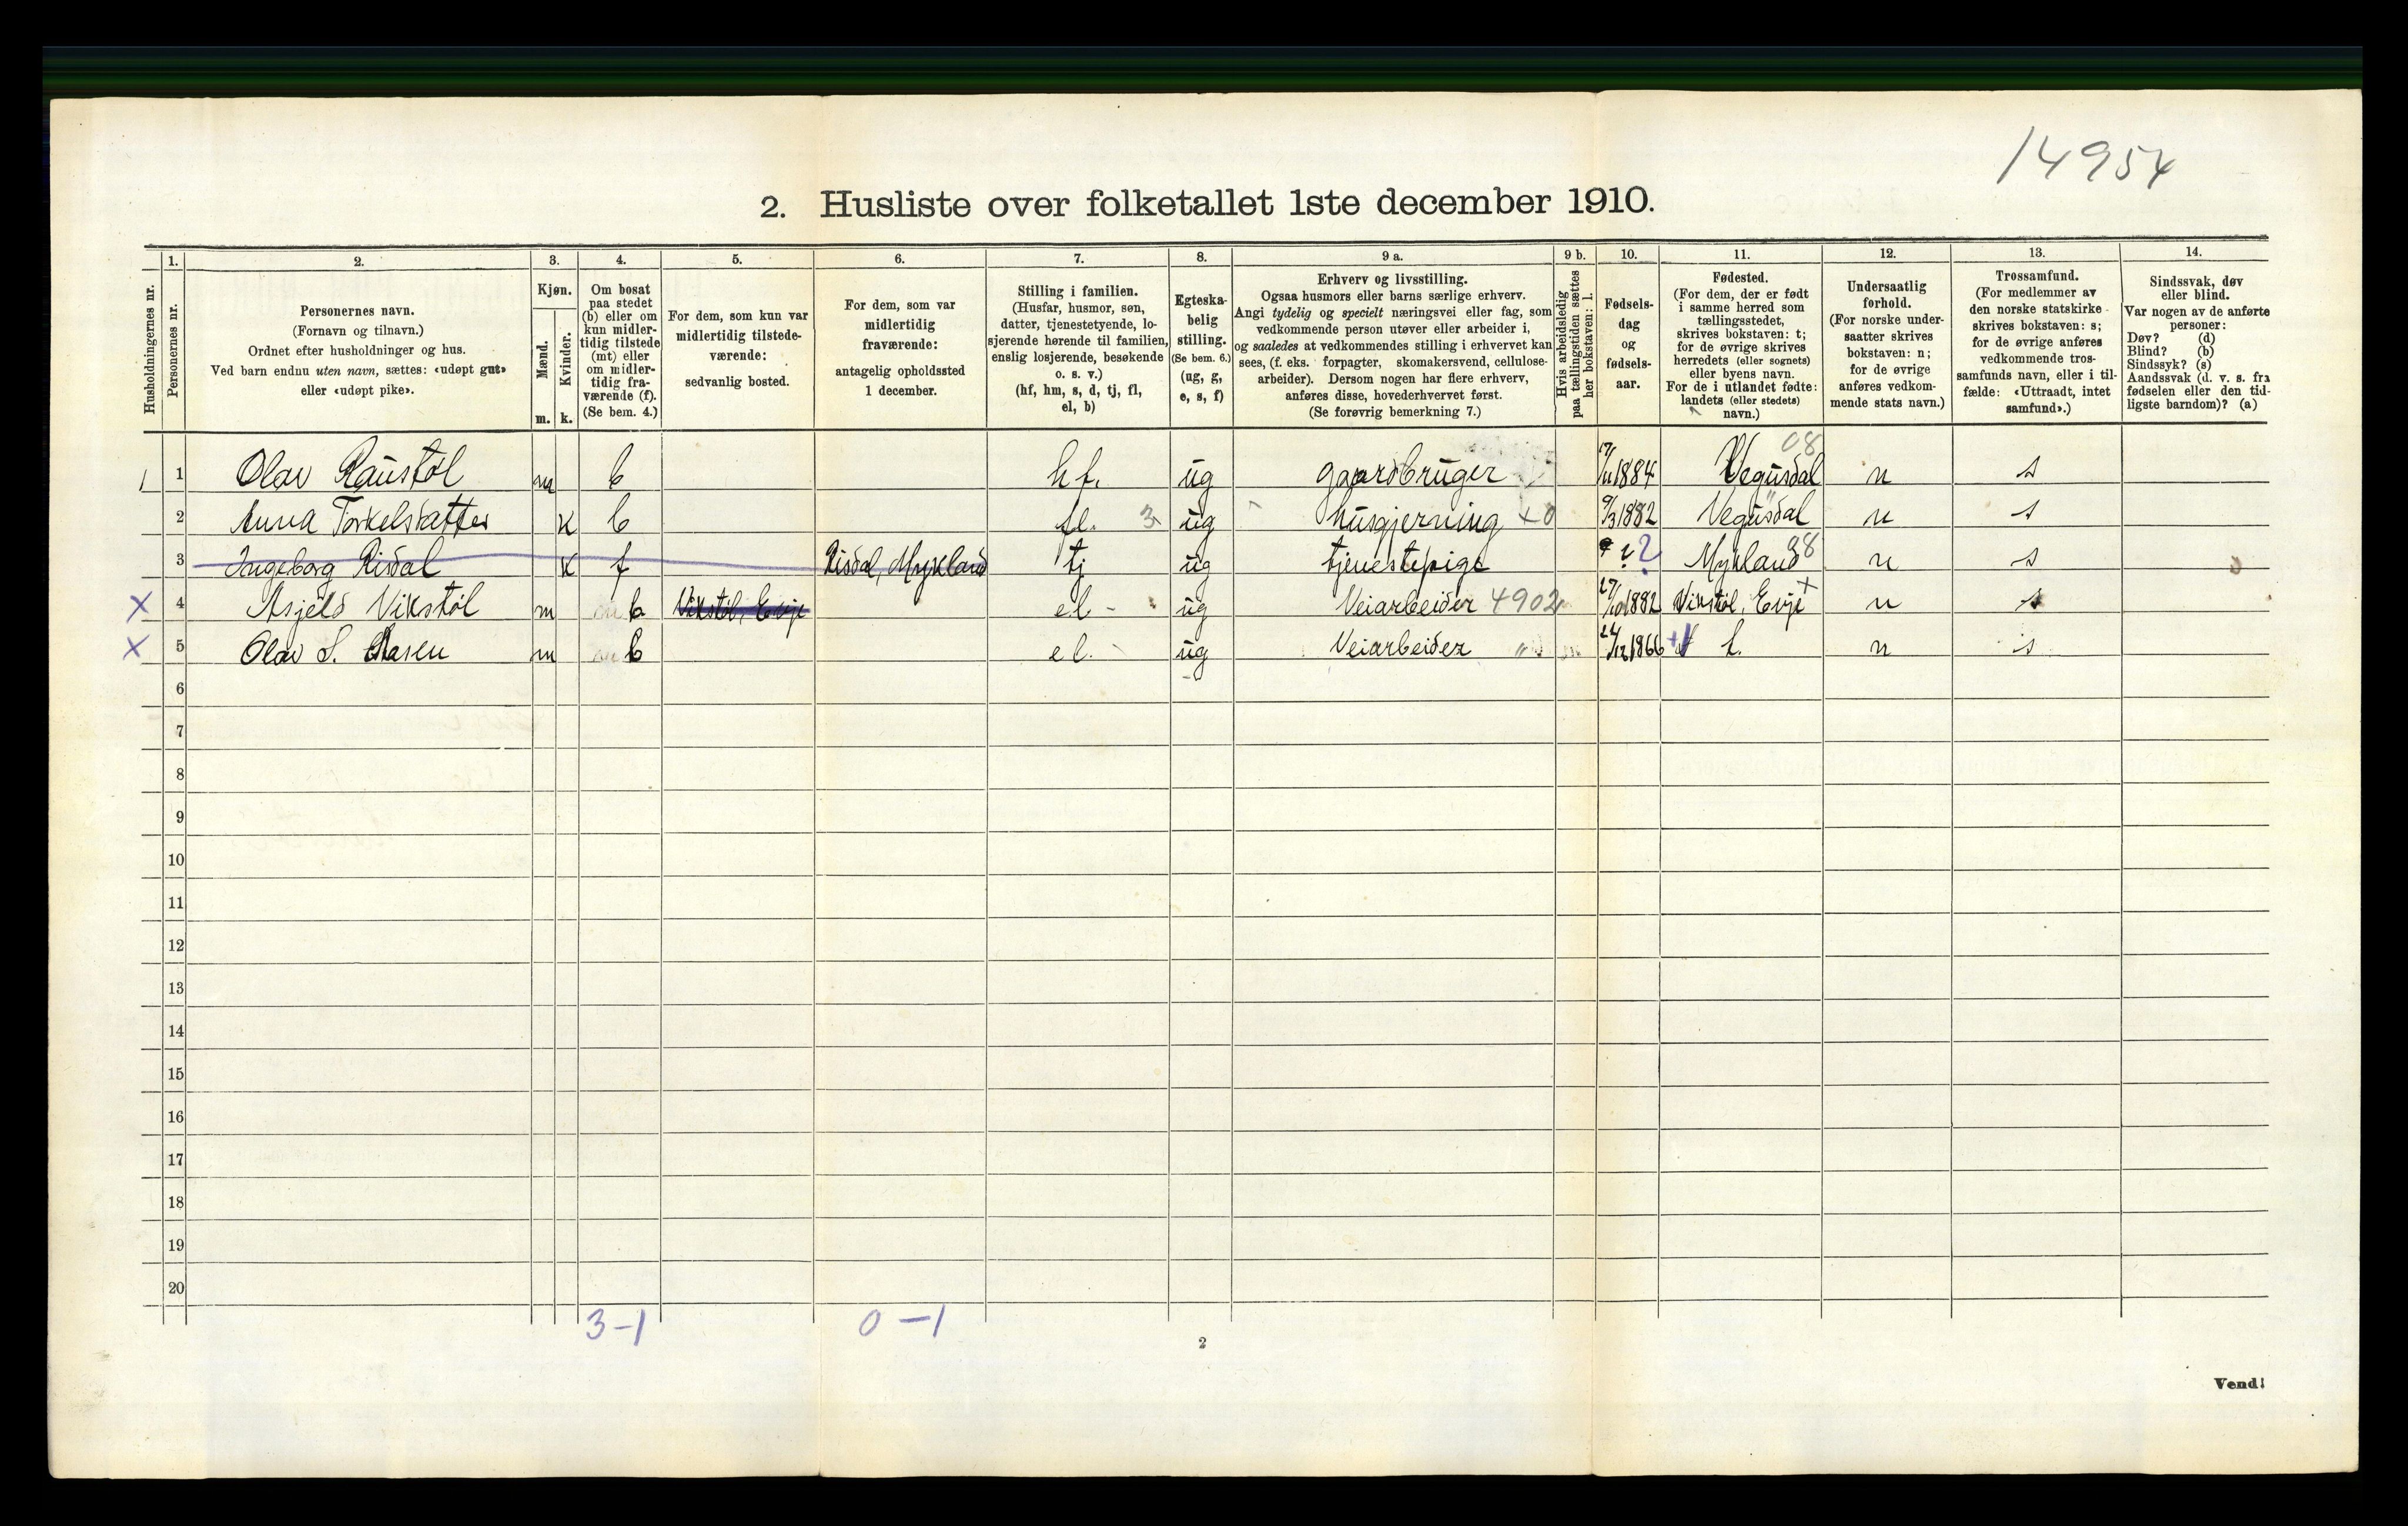 14954
2. Husliste over folketallet 1ste december 1910.
Husholdningernes nr.
1.
Personernes nr.
2.
Personernes navn.
(Fornavn og tilnavn.)
Ordnet efter husholdninger og hus.
Ved barn endnu uten navn, sættes: «udøpt gut»
eller «udøpt pike».
3.
Kjøn.
Mænd.
Kvinder.
m. k.
4.
Om bosat
paa stedet
(b) eller om
kun midler-
tidig tilstede
(mt) eller
om midler-
tidig fra-
værende (f).
(Se bem. 4.)
5.
For dem, som kun var
midlertidig tilstede-
værende:
sedvanlig bosted.
6.
For dem, som var
midlertidig
fraværende:
antagelig opholdssted
1 december.
7.
Stilling i familien.
(Husfar, husmor, søn,
datter, tjenestetyende, lo-
sjerende hørende til familien,
enslig losjerende, besøkende
o. s. v.)
(hf, hm, s, d, tj, fl,
el, b)
8.
Egteska-
belig
stilling.
(Se bem. 6.)
(ug, g,
e, s, f)
9 a.
Erhverv og livsstilling.
Ogsaa husmors eller barns særlige erhverv.
Angi tydelig og specielt næringsvei eller fag, som
vedkommende person utøver eller arbeider i,
og saaledes at vedkommendes stilling i erhvervet kan
sees, (f. eks. forpagter, skomakersvend, cellulose-
arbeider). Dersom nogen har flere erhverv,
anføres disse, hovederhvervet først.
(Se forøvrig bemerkning 7.)
9 b.
Hvis arbeidsledig
paa tællingstiden sættes
her bokstaven: l.
10.
Fødsels-
dag
og
fødsels-
aar.
11.
Fødested.
(For dem, der er født
i samme herred som
tællingsstedet,
skrives bokstaven: t;
for de øvrige skrives
herredets (eller sognets)
eller byens navn.
For de i utlandet fødte:
landets (eller stedets)
navn.)
12.
Undersaatlig
forhold.
(For norske under-
saatter skrives
bokstaven: n;
for de øvrige
anføres vedkom-
mende stats navn.)
13.
Trossamfund.
(For medlemmer av
den norske statskirke
skrives bokstaven: s;
for de øvrige anføres
vedkommende tros-
samfunds navn, eller i til-
fælde: «Uttraadt, intet
samfund».)
14.
Sindssvak, døv
eller blind.
Var nogen av de anførte
personer:
Døv? (d)
Blind? (b)
Sindssyk? (s)
Aandssvak (d. v. s. fra
fødselen eller den tid-
ligste barndom)? (a)
1 1 Olav Raustøl m b hf. ug gaardbruger 17/11 1884 Vegusdal 08 n s
2 Anna Torkelsdatter k b fl. 3 ug husgjerning +0 9/3 1882 Vegusdal n s
3 Ingeborg Risdal k f Risdal, Mykland tj ug tjenestepige ? ? Mykland 98 n s
X 4 Asjeld Vikstøl m b Vikstøl, Evje el - ug Veiarbeider 4902 27/10 1882 Vikstøl, Evje + n s
X 5 Olav S. Aasen m b el. ug Veiarbeider 24/12 1866 + t. n s
6
7
8
9
10
11
12
13
14
15
16
17
18
19
20
3-1 0-1
2
Vend!